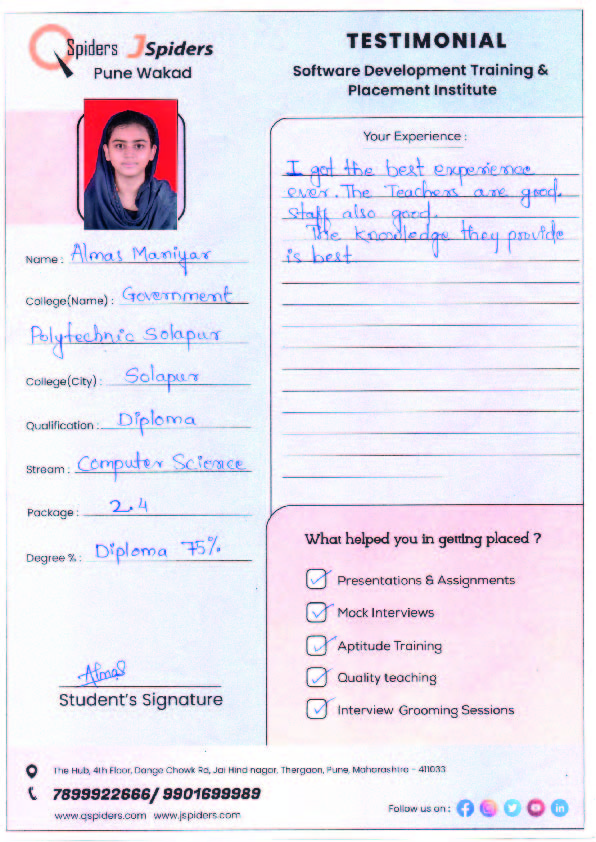 QSpiders JSpiders
Pune Wakad
TESTIMONIAL
Software Development Training &
Placement Institute
Name : Almas Maniyar
College(Name) : Government
Polytechnic Solapur
College(City) : Solapur
Qualification : Diploma
Stream : Computer Science
Package : 2.4
Degree % : Diploma 75%
Almas
Student's Signature
Your Experience :
I got the best experience
ever. The Teachers are good.
Staff also good.
The knowledge they provide
is best
What helped you in getting placed ?
Presentations & Assignments
Mock Interviews
Aptitude Training
Quality teaching
Interview Grooming Sessions
The Hub, 4th Floor, Dange Chowk Rd, Jai Hind nagar, Thergaon, Pune, Maharashtra - 411033
7899922666/ 9901699989
www.qspiders.com www.jspiders.com
Follow us on :